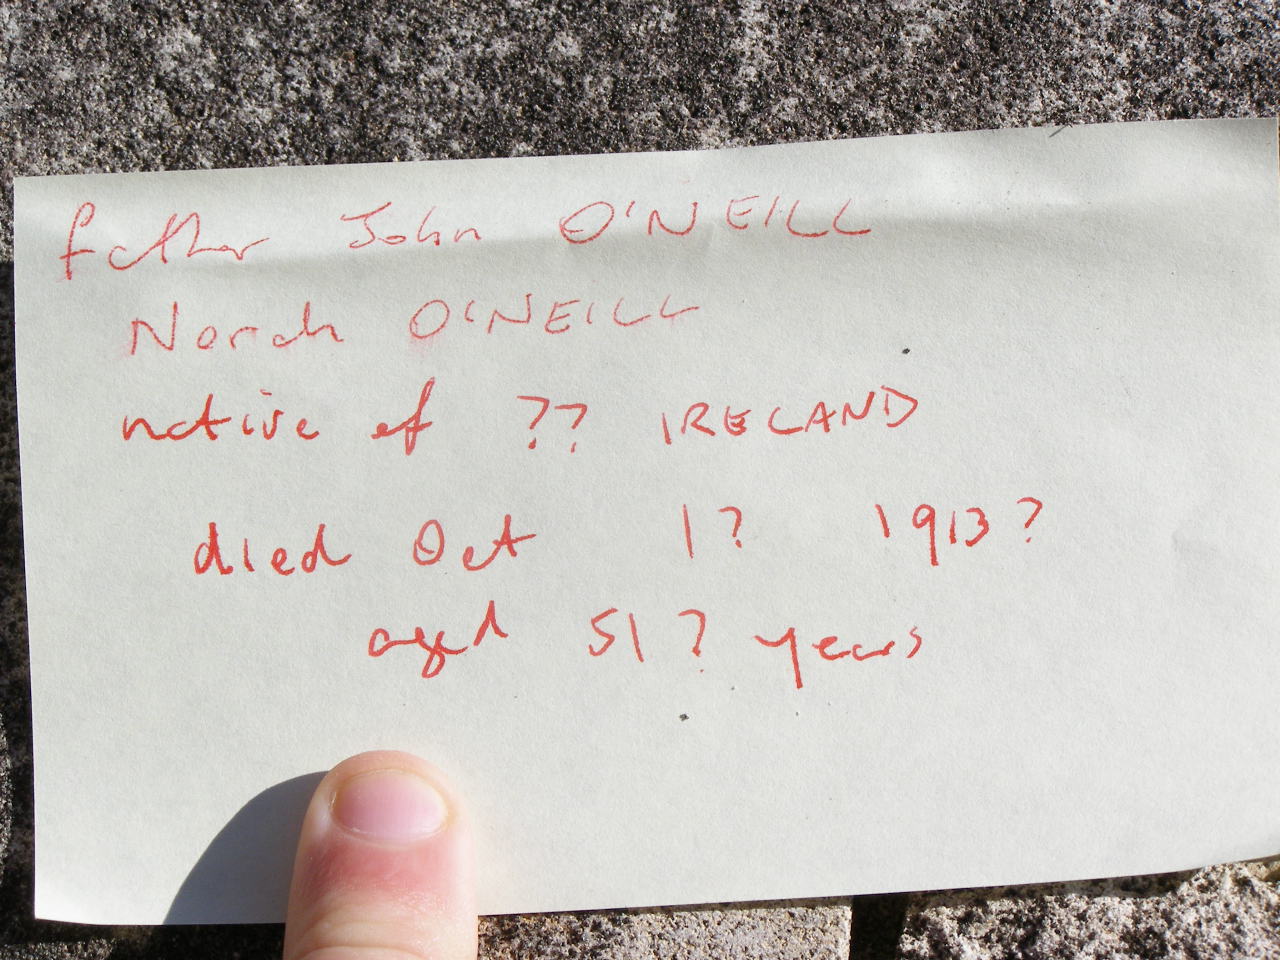 father John O'NEILL
Norah O'NEILL
native of ?? IRELAND
died Oct 1? 1913?
aged 51? years